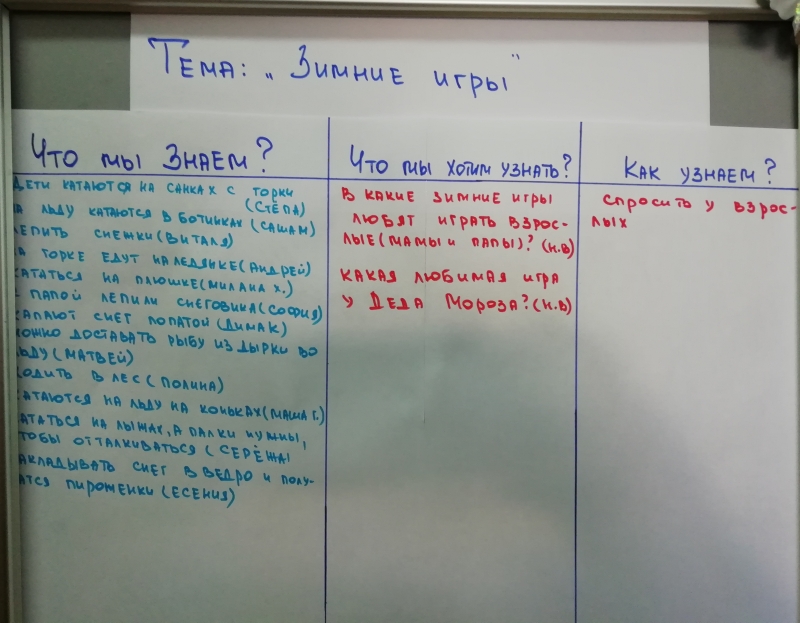 Тема: „Зимние игры"
Что мы знаем?
Дети катаются на санках с горки
(Стёпа)
На льду катаются в ботинках (Саша М)
лепить снежки (Виталя)
на горке едут на ледянке (Андрей)
кататься на плюшке (Милана Х.)
с папой лепили снеговика (София)
капают снег лопатой (Дима К)
можно доставать рыбу из дырки во
льду (Матвей)
ходить в лес (Полина)
катаются на льду на коньках (Маша Г.)
кататься на лыжах, а палки нужны,
чтобы отталкиваться (Серёжа)
накладывать снег в ведро и полу-
чатся пироженки (Есения)
Что мы хотим узнать?
В какие зимние игры
любят играть взрос-
лые (мамы и папы)? (н.в)
Какая любимая игра
у Деда Мороза? (н.в)
Как узнаем?
спросить у взрос-
лых